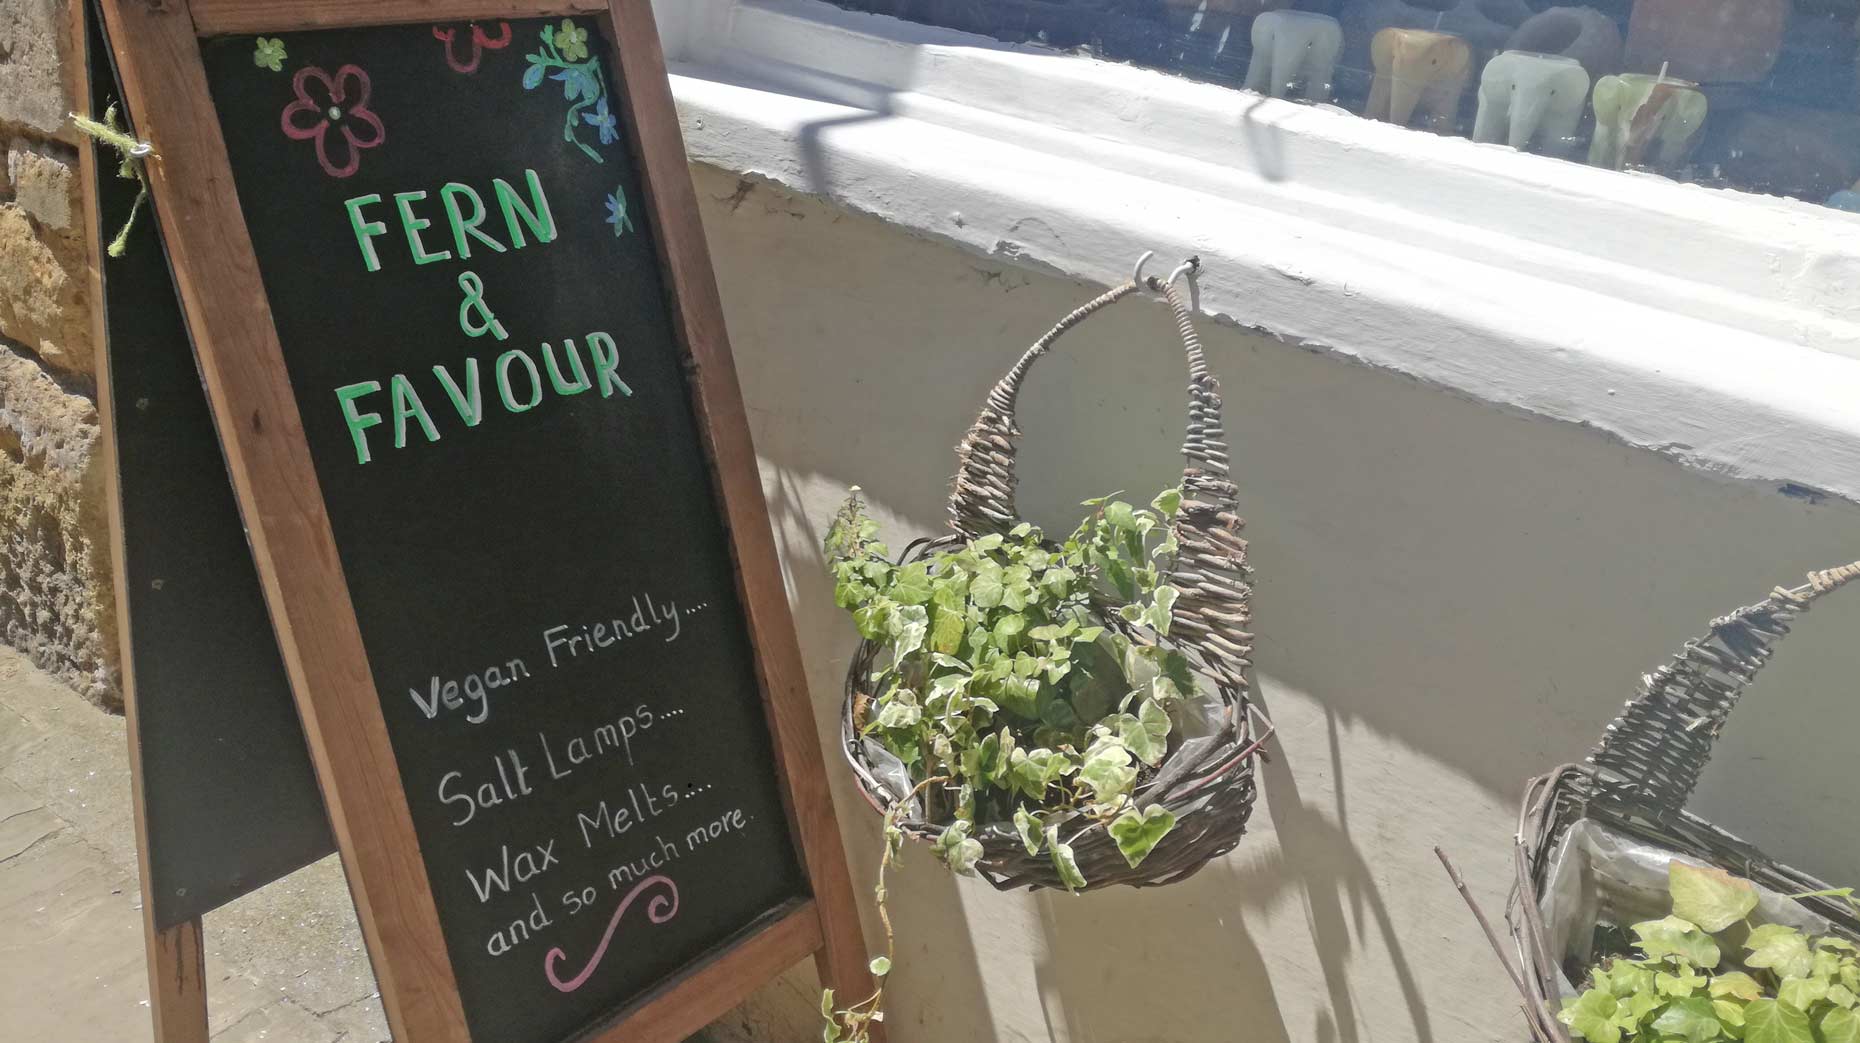 FERN
&
FAVOUR
Vegan Friendly....
Salt Lamps....
Wax Melts....
and so much more.